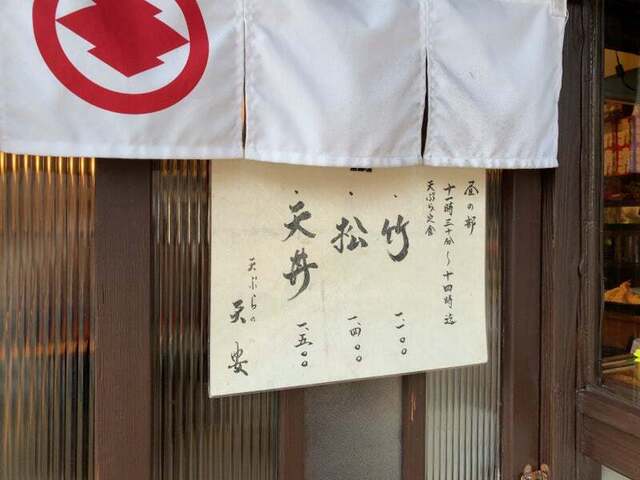 昼の部
十一時三十分〜十四時迄
天ぷら定食
・竹 一、一〇〇
・松 一、四〇〇
・天丼 一、五〇〇
天ぷらの
天安